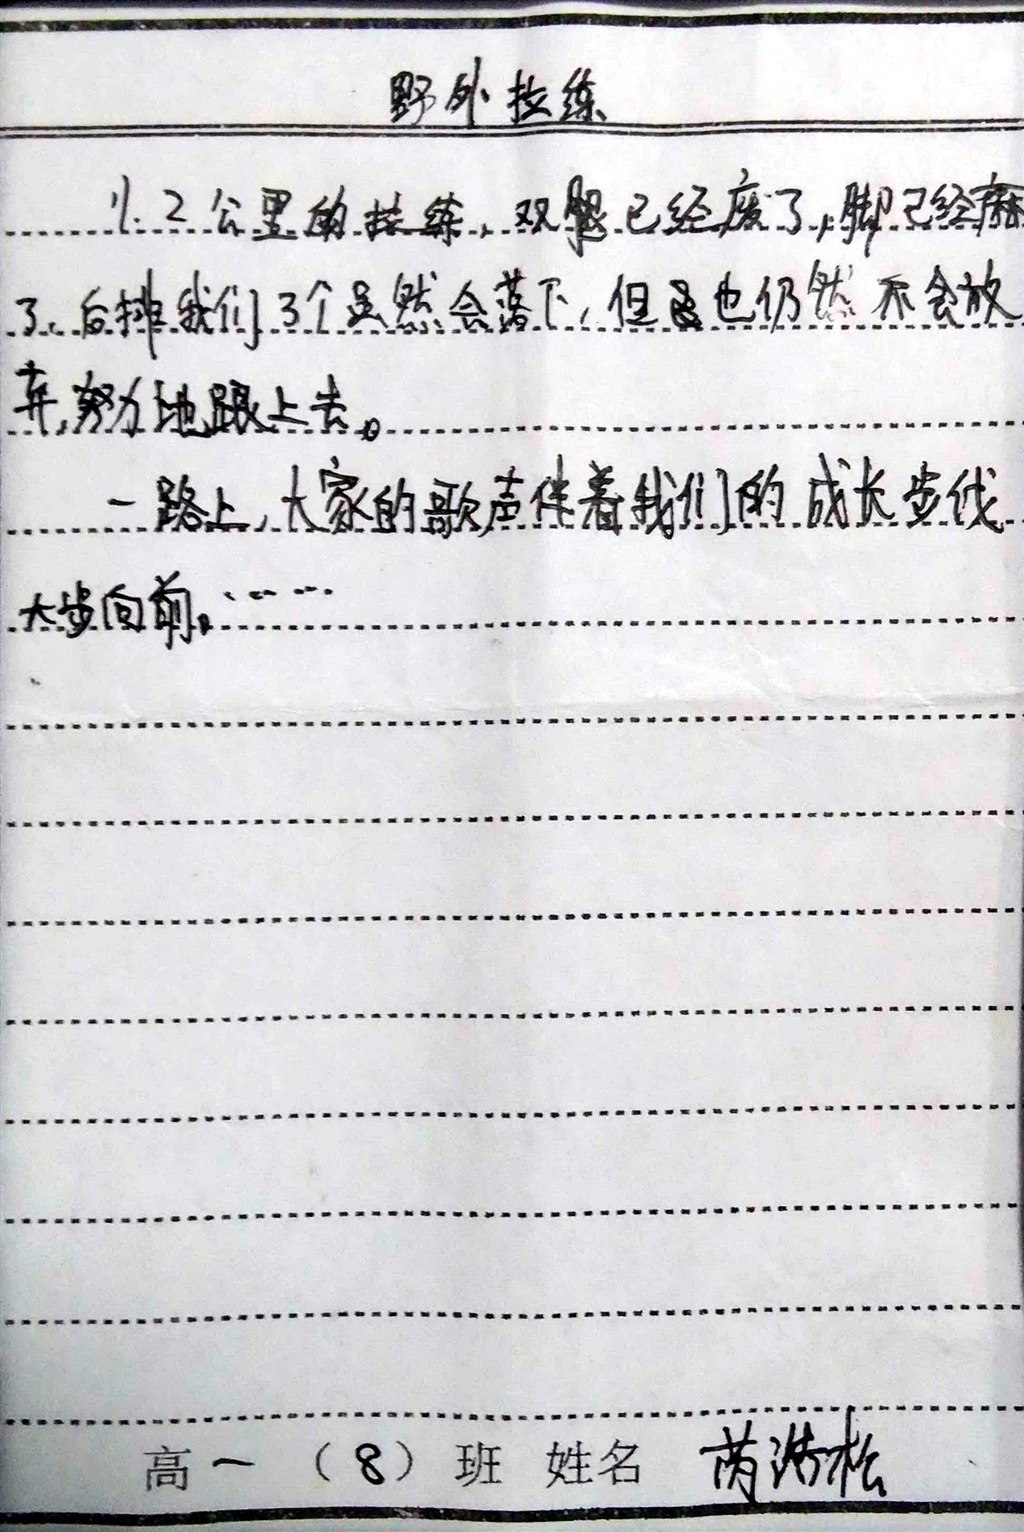 野外拉练
11.2公里的拉练,双腿已经废了,脚已经麻
了、后排我们3个虽然会落下,但是也仍然不会放
弃,努力地跟上去。
一路上,大家的歌声伴着我们的成长步伐
大步向前。……
高一(8)班 姓名 芮浩松